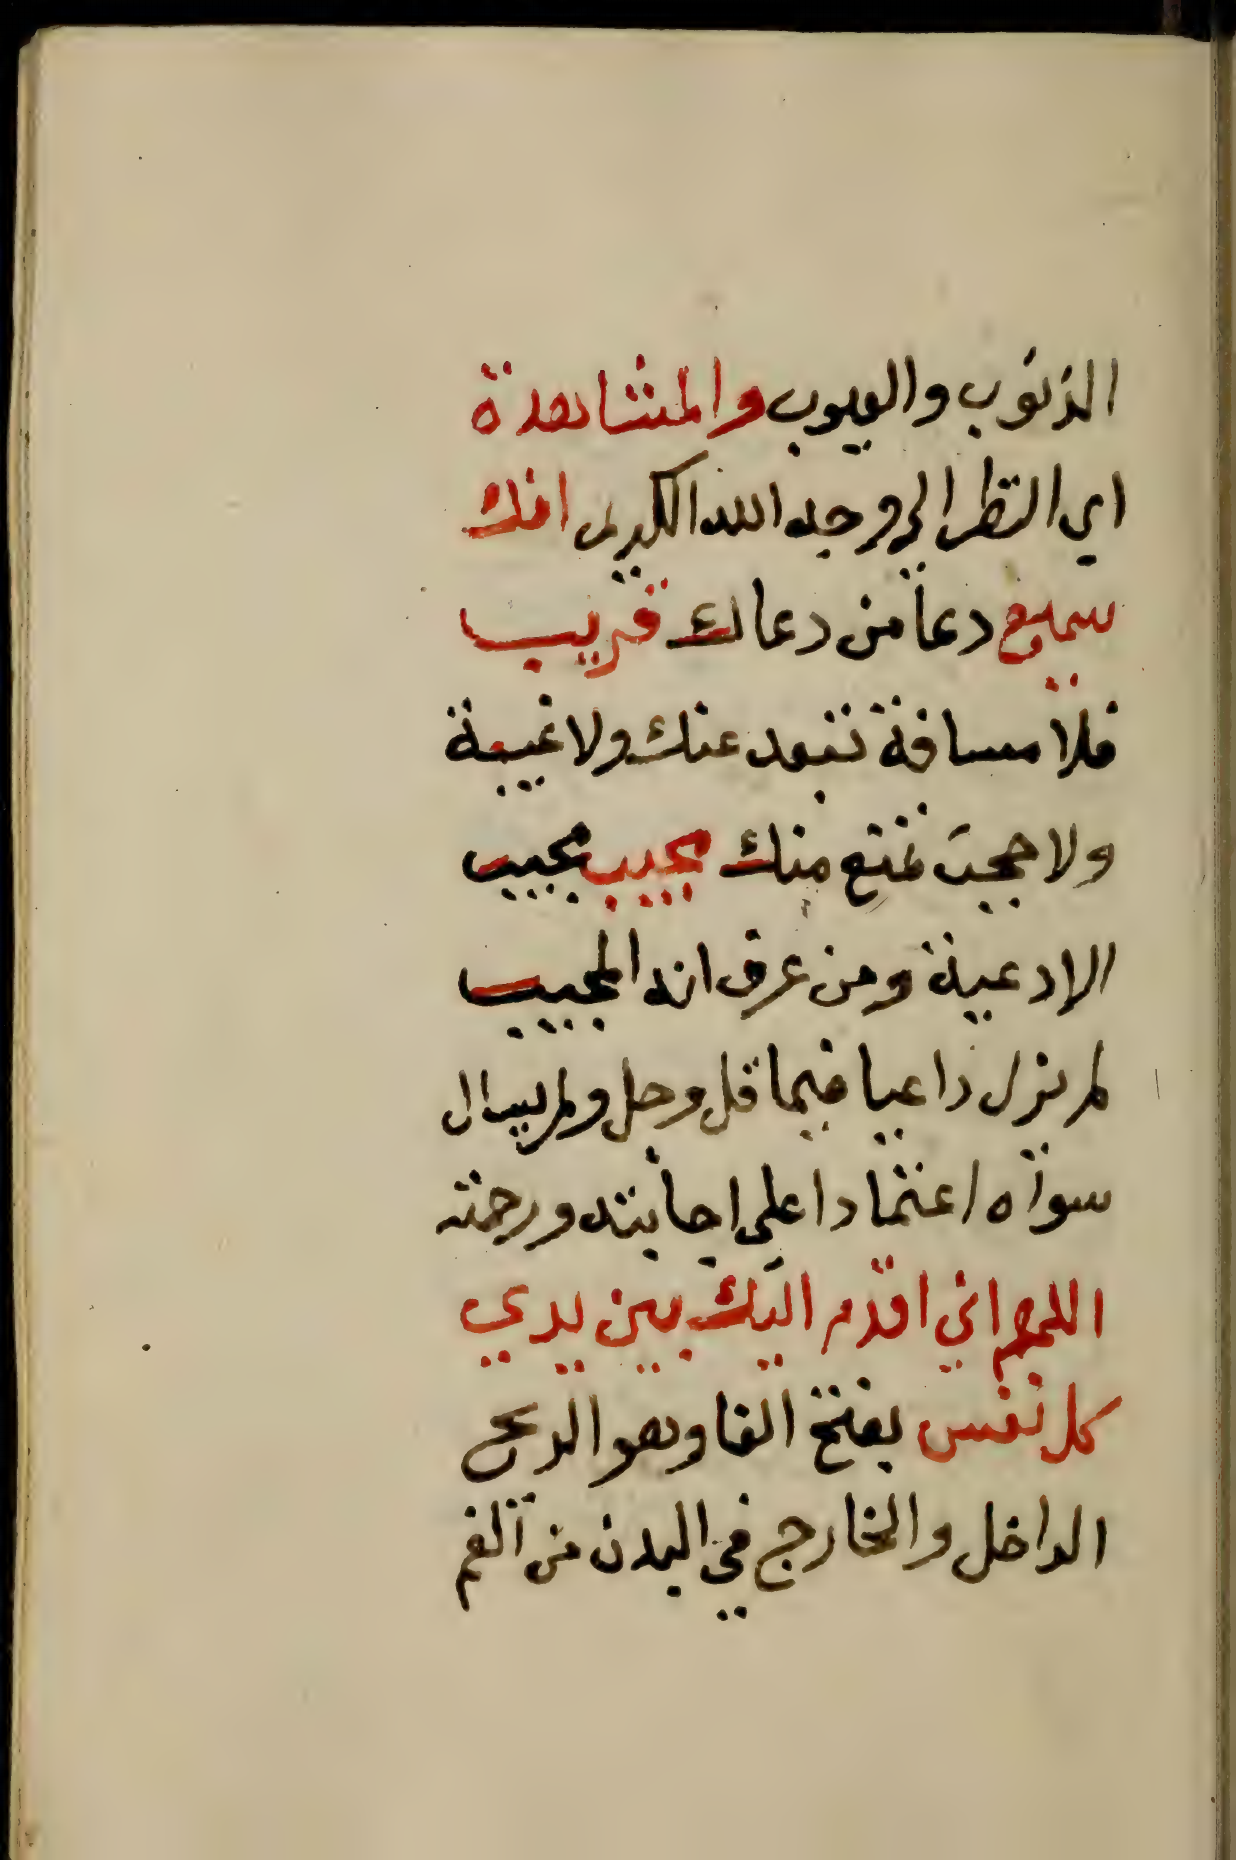 الذنوب والعيوب والمشاهدة
اي النظر الى وجه الله الكريم انك
سميع دعآ من دعا لك قريب
فلا مسافة تبعد عنك ولا غيبة
ولا حجب تمنع منك مجيب مجيب
الادعية ومن عرف انه المجيب
لم يزل داعيا فيما قل وجل ولم يسال
سوآه اعتمادا علي اجابته ورحمته
اللهم اني اقدم اليك بين يدي
كل نفس بفتح الفا وهو الريح
الداخل والخارج في البدن من الفم